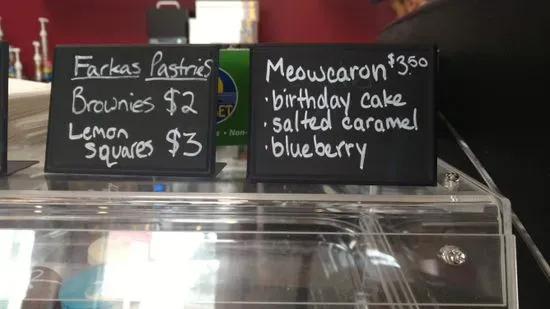 Farkas Pastries
Brownies $2
Lemon
squares $3
Meowcaron $3.50
· birthday cake
· salted caramel
· blueberry
• Non-